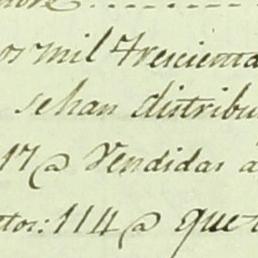 os mil Trescienta
se han distribu
17@ Vendidas a
ttos: 114@ que